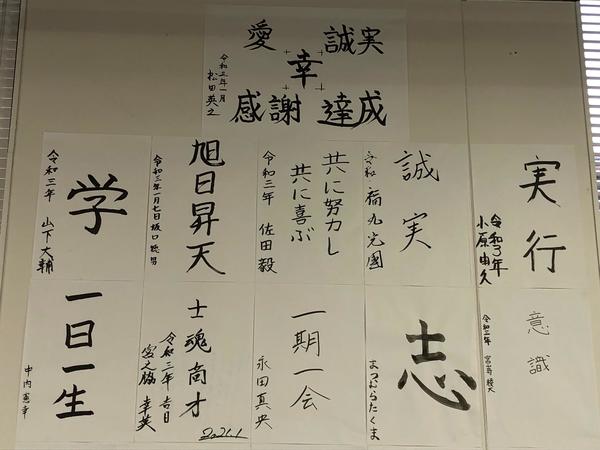 愛 誠実
幸
感謝 達成
令和三年一月
松田英之
学
令和三年 山下大輔
旭日昇天
令和三年一月七日 坂口
共に努力し
共に喜ぶ
令和三年 佐田毅
誠実
福丸完國
実行
令和3年
小原由久
一日一生
中内
士魂商才
令和三年 吉日
宮之脇 幸英
2021.1
一期一会
永田真央
志
まつむらたくま
意識
令和三年